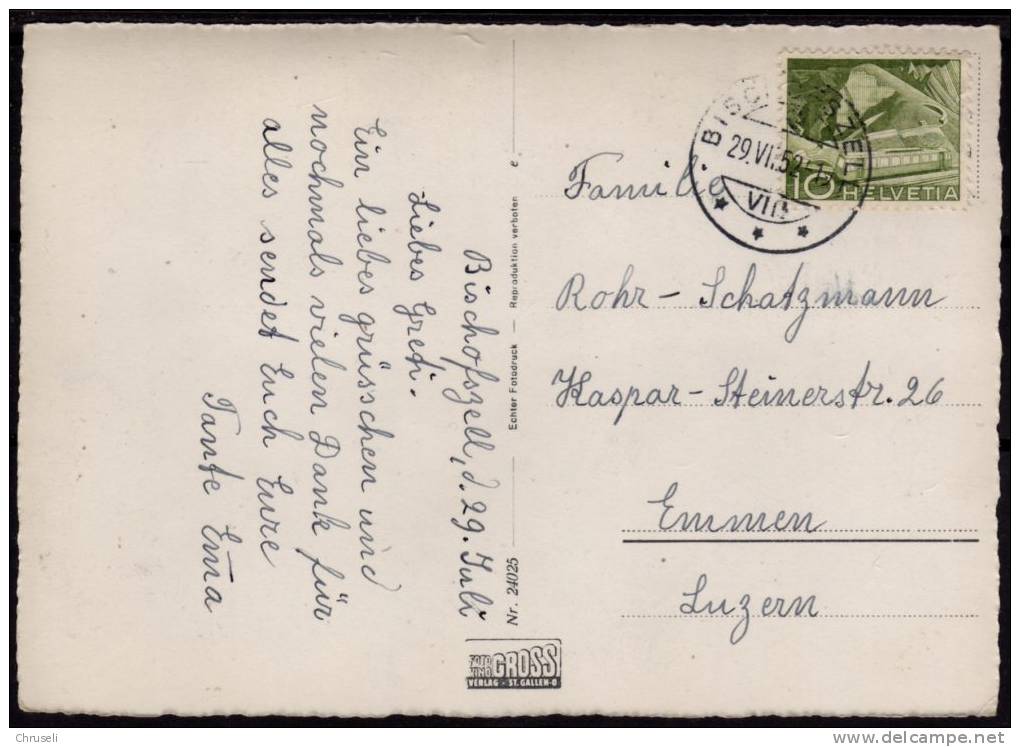 Bischofszell, d. 29. Juli
Liebes Greti.
Ein liebes grüsschen und
nochmals vielen Dank für
alles sendet Euch Eure
Tante Erna
Echter Fotodruck — Reproduktion verboten
Nr. 24025
FOTO GROSS
VERLAG - ST. GALLEN-O
BISCHOFSZELL
29.VII.52
HELVETIA
10
Familie
Rohr - Schatzmann
Kaspar-Steinerstr. 26
Emmen
Luzern
© Chruseli
www.delcampe.net